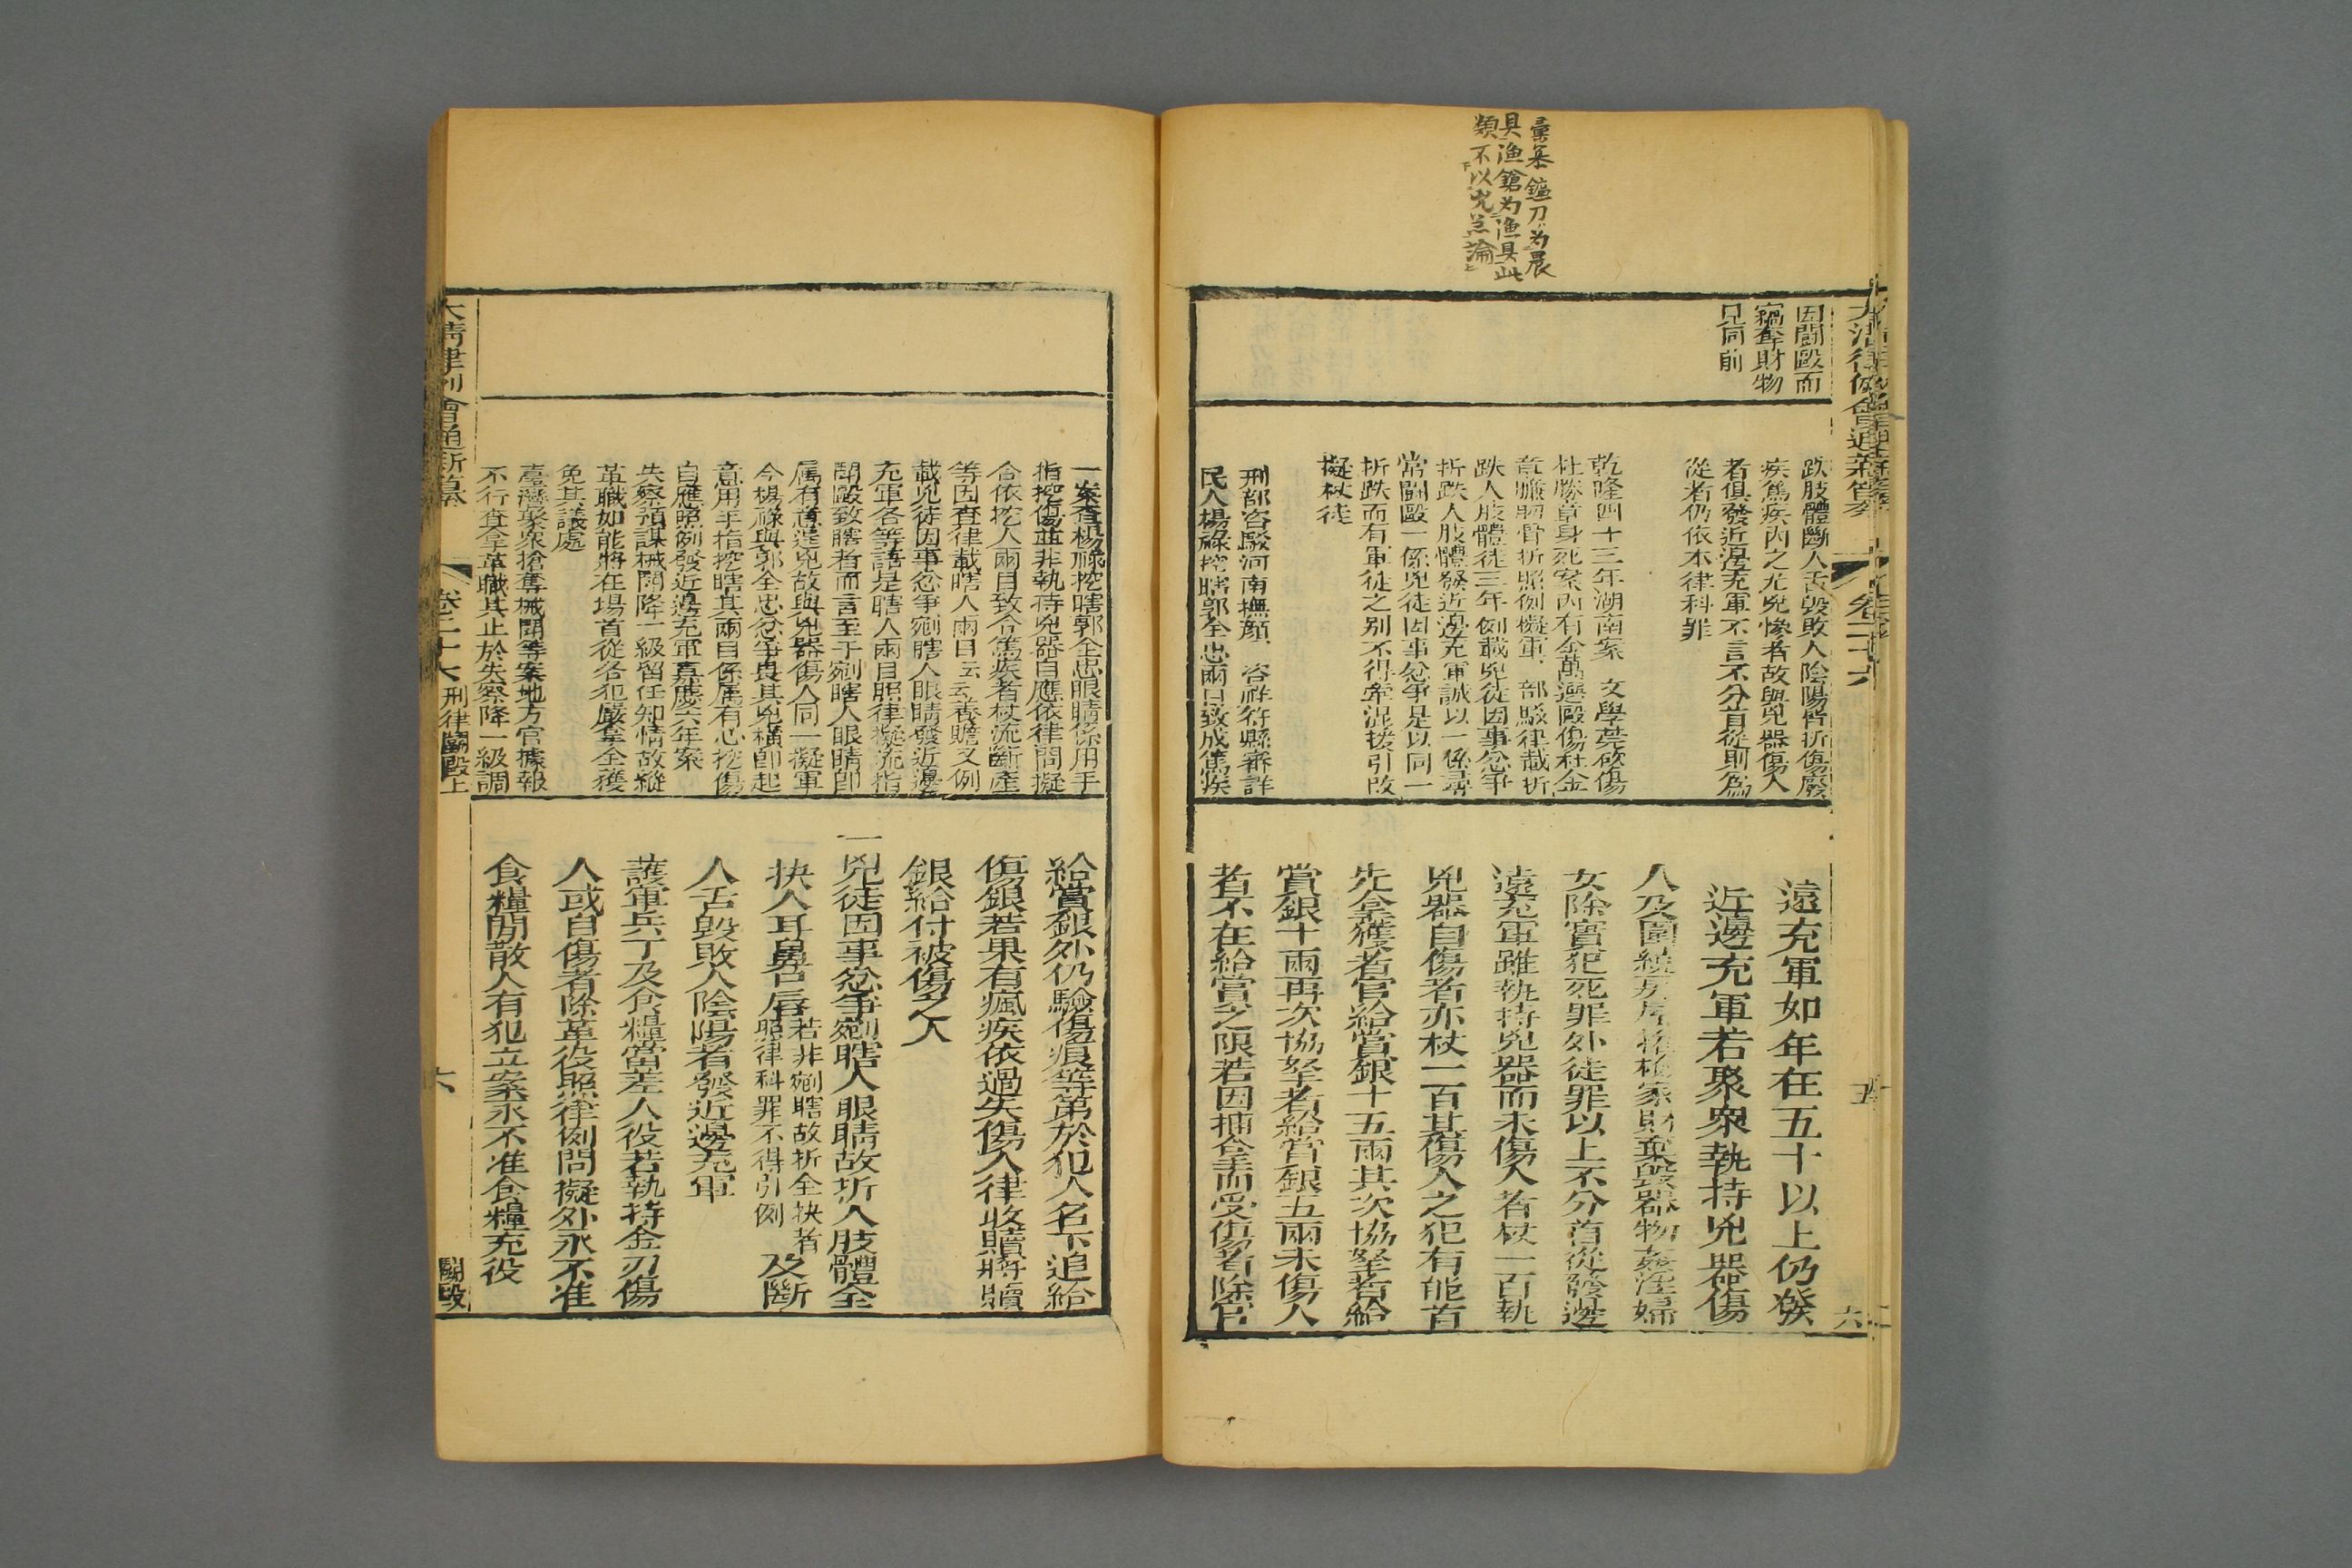 彙纂鐮刀为農
具渔鎗为渔具此
類不以兇器論
因鬬毆而
竊奪財物
見同前
跌肢體斷人舌毀敗人陰陽皆折傷廢
疾篤疾內之尤兇慘者故與兇器傷人
者俱發近邊充軍不言不分首從則為
從者仍依本律科罪
乾隆四十三年湖南案 文學莞砍傷
杜勝章身死案內有余萬選毆傷杜金
章臁肕骨折照例擬軍 部駁律載折
跌人肢體徒三年例載兇徒因事忿爭
折跌人肢體發近邊充軍誠以一係尋
常鬭毆一係兇徒因事忿爭是以同一
折跌而有軍徒之别不得牽混援引改
擬杖徒
刑部咨駁河南撫顏 咨祥符縣審詳
民人楊祿挖瞎郭全忠兩目致成篤疾
遠充軍如年在五十以上仍發
近邊充軍若聚衆執持兇器傷
人及圍繞房屋搶檢家財棄毀器物姦淫婦
女除實犯死罪外徒罪以上不分首從發邊
遠充軍雖執持兇器而未傷人者杖一百執
兇器自傷者亦杖一百其傷人之犯有能首
先拿獲者官給賞銀十五兩其次協拏者給
賞銀十兩再次協拏者給賞銀五兩未傷人
者不在給賞之限若因捕拿而受傷者除官
卷二十六
五
一案查楊祿挖瞎郭全忠眼睛係用手
指挖傷並非執持兇器自應依律問擬
合依挖人兩目致令篤疾者杖流斷產
等因查律載瞎人兩目云云養贍又例
載兇徒因事忿爭剜瞎人眼睛發近邊
充軍各等語是瞎人兩目照律擬流指
鬬毆致瞎者而言至于剜瞎人眼睛卽
属有意逞兇故與兇器傷人同一擬軍
今楊祿與郭全忠忿爭畏其兇橫卽起
意用手指挖瞎其兩目係属有心挖傷
自應照例發近邊充軍嘉慶六年案
失察預謀械鬬降一級留任知情故縱
革職如能將在場首從各犯嚴拏全獲
免其議處
臺灣聚衆搶奪械鬬等案地方官據報
不行查拿革職其止於失察降一級調
給賞銀外仍驗傷痕等第於犯人名下追給
傷銀若果有瘋疾依過失傷人律收贖將贖
銀給付被傷之人
一兇徒因事忿爭剜瞎人眼睛故折人肢體全
抉人耳鼻口唇若非剜瞎故折全抉者照律科罪不得引例及斷
人舌毀敗人陰陽者發近邊充軍
護軍兵丁及食糧當差人役若執持金刃傷
人或自傷者除革役照律例問擬外永不准
食糧閒散人有犯立案永不准食糧充役
大清律例會通新纂
卷二十六
刑律鬬毆上
六
鬬毆